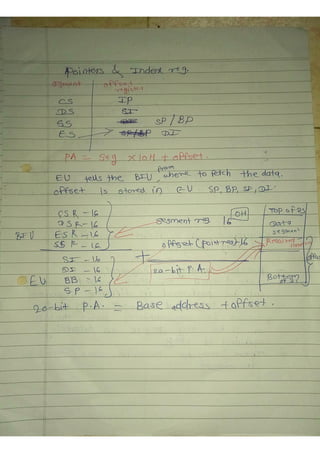 Pointers & Index reg.
Segment offset register
CS IP
DS SI
SS SP/BP
ES DI
PA = Seg x10H + offset.
EU tells the BIU from where to fetch the data.
offset is stored in EU SP, BP, SI, DI
CSR - 16
DSR - 16
BIU ESR - 16
SSR - 16
Segment reg 16 0H
offset (pointres)-16
+
20-bit P.A.
SI - 16
DI - 16
EU BB - 16
SP - 16
Top of
Data segment
Required
Bottom
20-bit P.A. = Base address + offset.